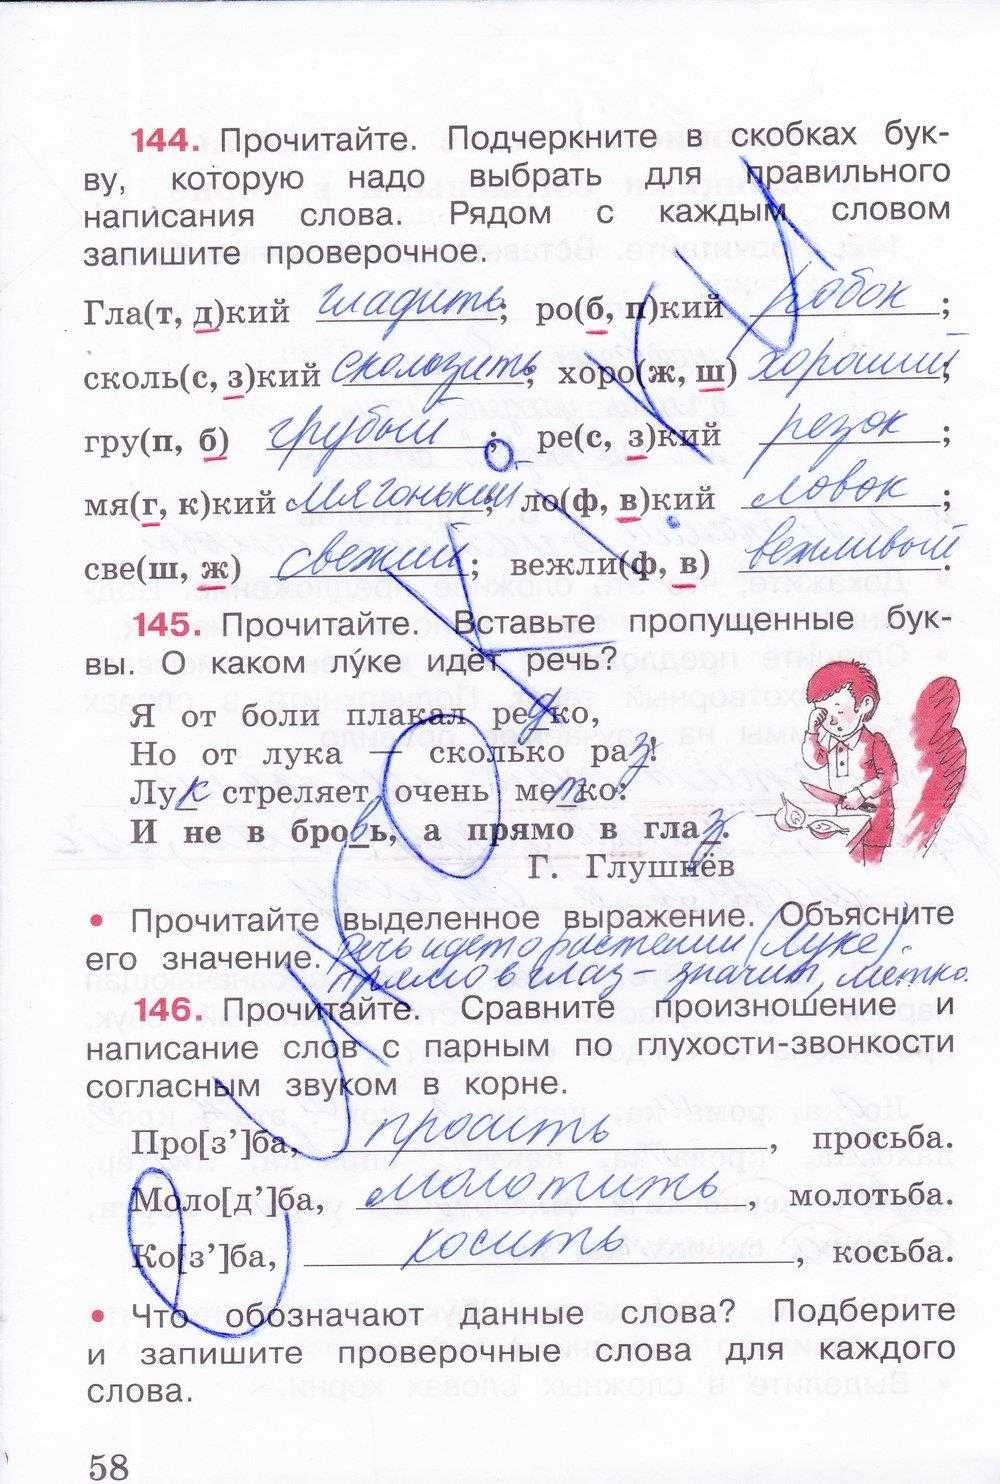 144. Прочитайте. Подчеркните в скобках бук-
ву, которую надо выбрать для правильного
написания слова. Рядом с каждым словом
запишите проверочное.
Гла(т, д)кий гладить; ро(б, п)кий робок;
сколь(с, з)кий скользить; хоро(ж, ш) хороший;
гру(п, б) грубый; ре(с, з)кий резок;
мя(г, к)кий мягонький; ло(ф, в)кий ловок;
све(ш, ж) свежий; вежли(ф, в) вежливый.
145. Прочитайте. Вставьте пропущенные бук-
вы. О каком лу́ке идёт речь?
Я от боли плакал редко,
Но от лука — сколько раз!
Лук стреляет очень метко:
И не в бровь, а прямо в глаз.
Г. Глушнёв
• Прочитайте выделенное выражение. Объясните
его значение. речь идет о растении (Луке).
прямо в глаз – значит, метко.
146. Прочитайте. Сравните произношение и
написание слов с парным по глухости-звонкости
согласным звуком в корне.
Про[з’]ба, просить, просьба.
Моло[д’]ба, молотить, молотьба.
Ко[з’]ба, косить, косьба.
• Что обозначают данные слова? Подберите
и запишите проверочные слова для каждого
слова.
58